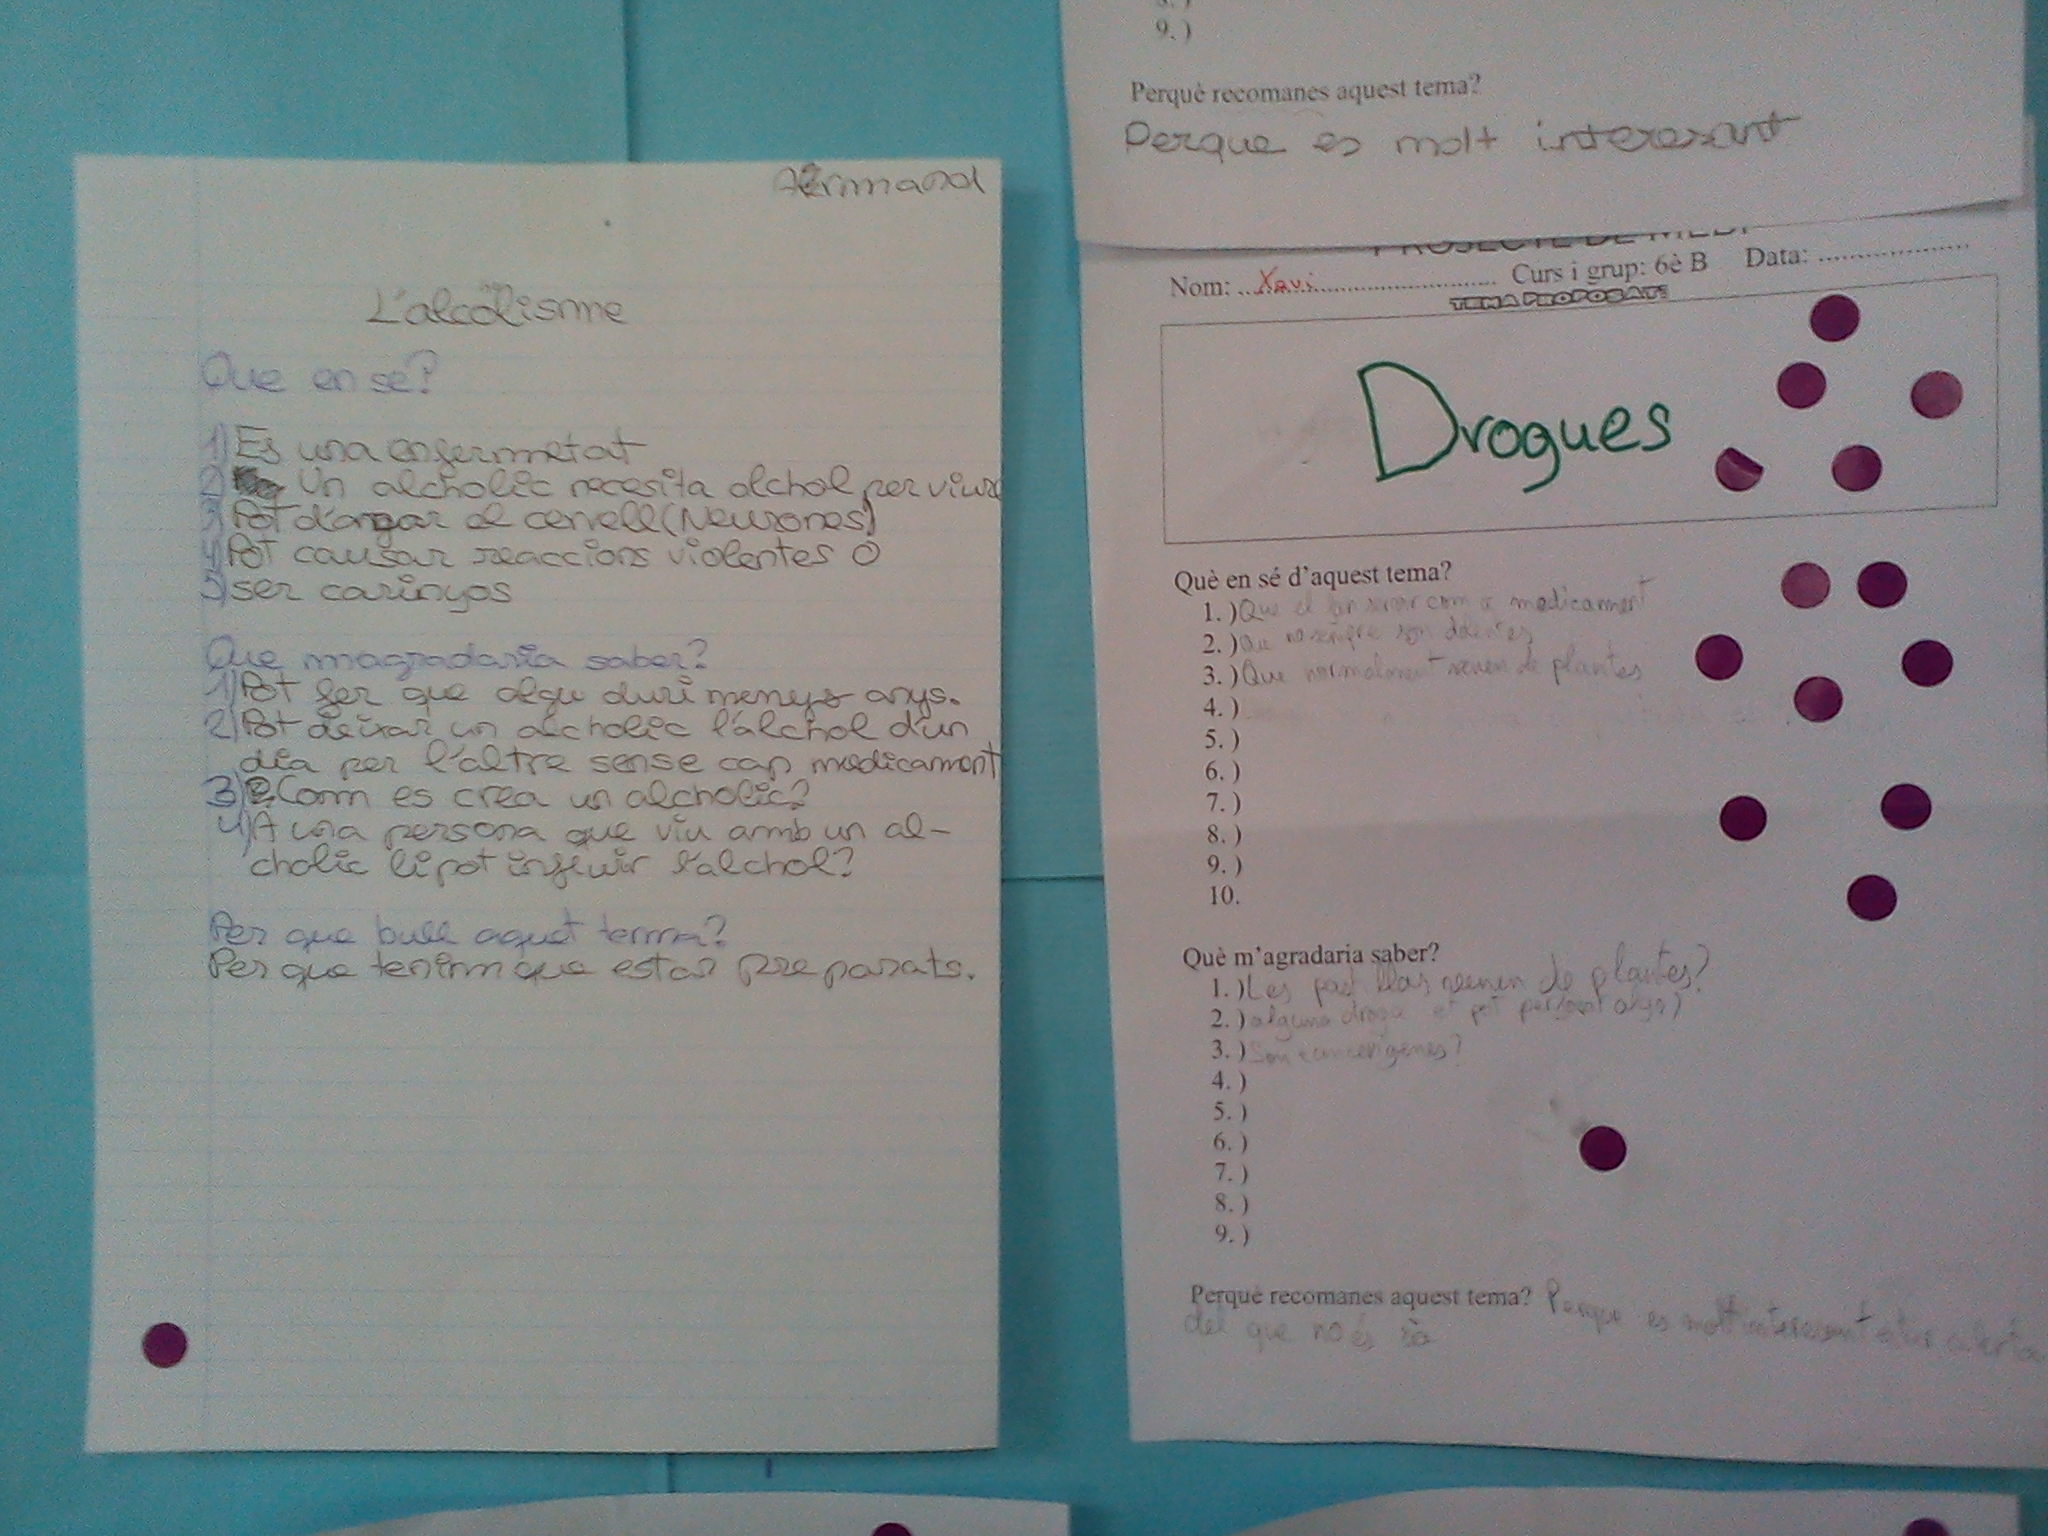 Armand
L'alcolisme
Que en se?
1) Es una enfermetat
2) Un alcholic necesita alchol per viure
3) Pot d'angar el cervell (Neurones)
4) Pot causar reaccions violentes o
5) ser carinyos
Que magradaria saber?
1) Pot fer que algu duri menys anys.
2) Pot deixar un alcholic l'alchol d'un
dia per l'altre sense cap medicament
3) Com es crea un alcholic?
4) A una persona que viu amb un al-
cholic li pot influir l'alchol?
Per que bull aquet tema?
Per que tenim que estar preparats.
9. )
Perquè recomanes aquest tema?
Perque es molt interesant
PROJECTE DE MEDI
Nom: Xavi Curs i grup: 6è B Data:
TEMA PROPOSAT:
Drogues
Què en sé d'aquest tema?
1. ) Que el fan servir com a medicament
2. ) Que no sempre son dolentes
3. ) Que normalment venen de plantes
4. )
5. )
6. )
7. )
8. )
9. )
10.
Què m'agradaria saber?
1. ) Les pastilles venen de plantes?
2. ) alguna droga et pot
3. ) Son cancerigenes?
4. )
5. )
6. )
7. )
8. )
9. )
Perquè recomanes aquest tema? Perque es molt interesant
del que no és sà